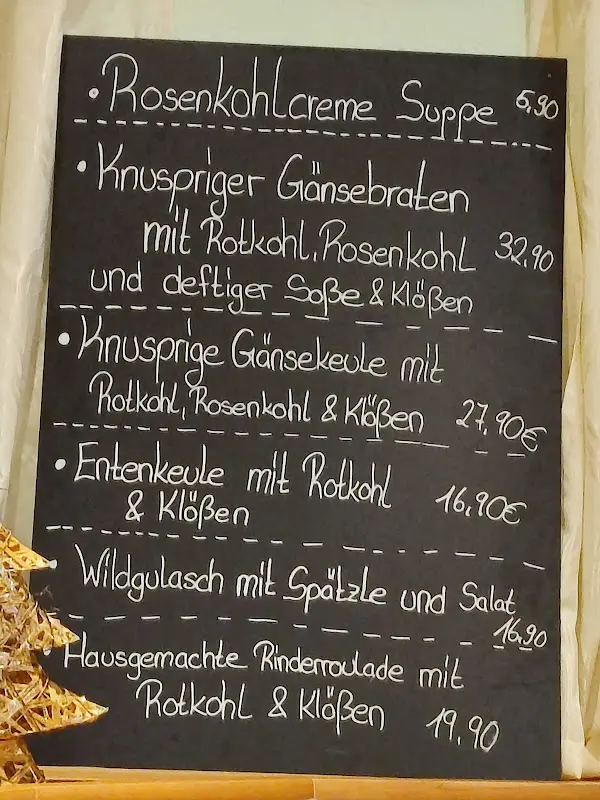 • Rosenkohlcreme Suppe 5,90
• Knuspriger Gänsebraten
mit Rotkohl, Rosenkohl 32,90
und deftiger Soße & Klößen
• Knusprige Gänsekeule mit
Rotkohl, Rosenkohl & Klößen 27,90€
• Entenkeule mit Rotkohl 16,90€
& Klößen
• Wildgulasch mit Spätzle und Salat
16,90
• Hausgemachte Rinderroulade mit
Rotkohl & Klößen 19,90